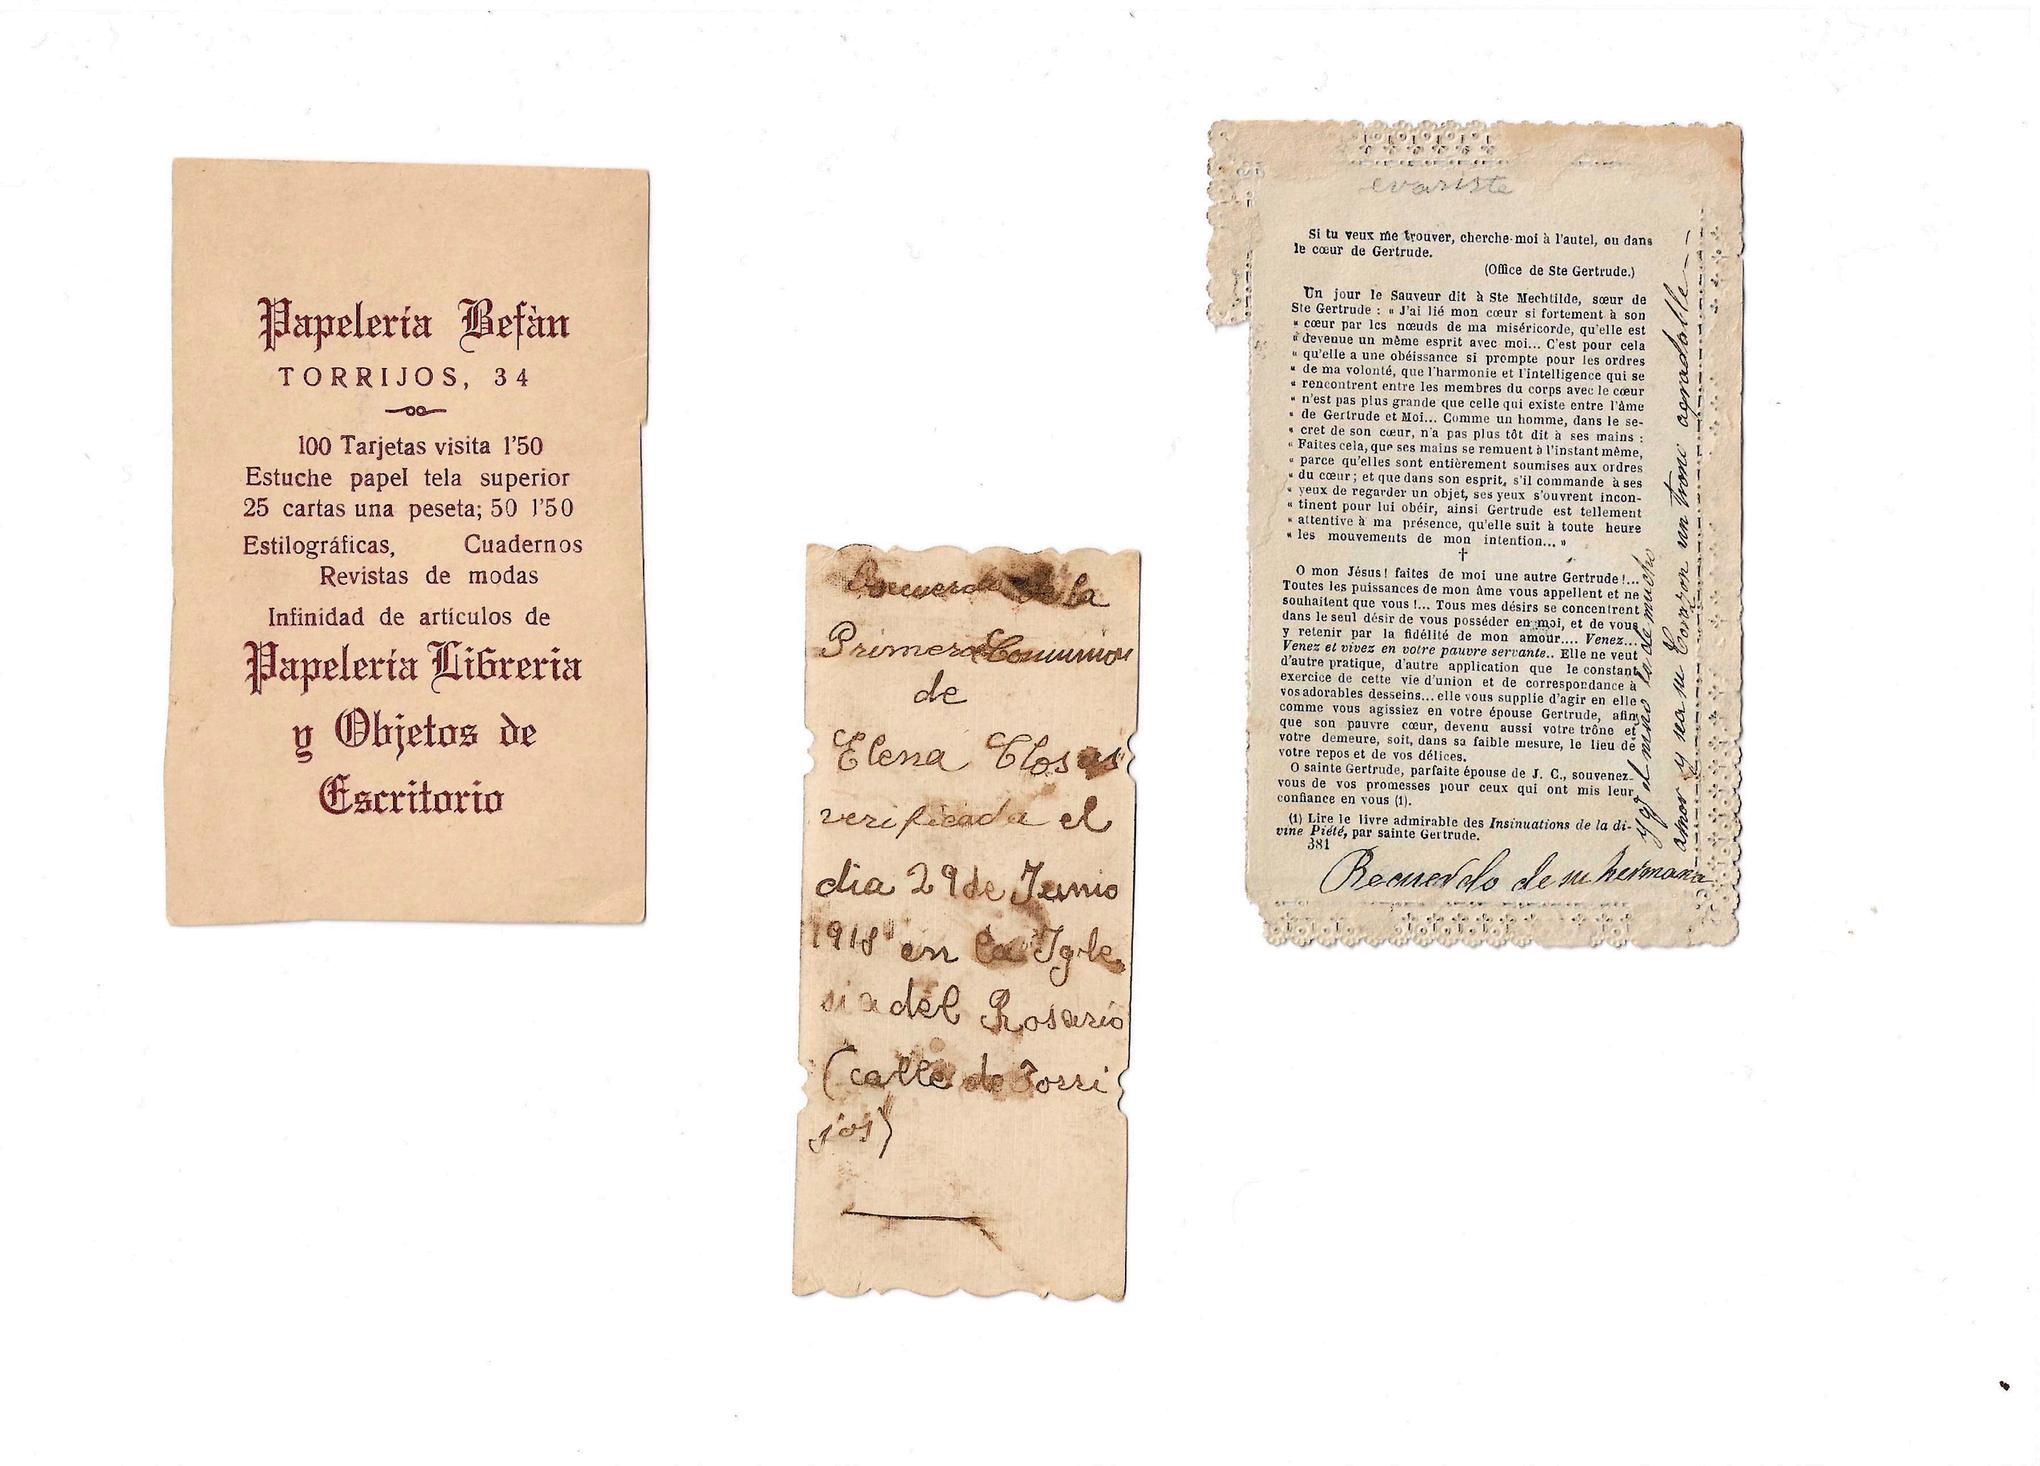 Papelería Befàn
TORRIJOS, 34
100 Tarjetas visita 1'50
Estuche papel tela superior
25 cartas una peseta; 50 1'50
Estilográficas, Cuadernos
Revistas de modas
Infinidad de artículos de
Papelería Libreria
y Objetos de
Escritorio
Recuerdo de la
Primera Comunion
de
Elena Closas
verificada el
dia 29 de Junio
1918 en la Igle
sia del Rosario
(calle de Torri
jos)
evariste
Si tu veux me trouver, cherche-moi à l'autel, ou dans
le cœur de Gertrude.
(Office de Ste Gertrude.)
Un jour le Sauveur dit à Ste Mechtilde, sœur de
Ste Gertrude : « J'ai lié mon cœur si fortement à son
« cœur par les nœuds de ma miséricorde, qu'elle est
« devenue un même esprit avec moi... C'est pour cela
« qu'elle a une obéissance si prompte pour les ordres
« de ma volonté, que l'harmonie et l'intelligence qui se
« rencontrent entre les membres du corps avec le cœur
« n'est pas plus grande que celle qui existe entre l'âme
« de Gertrude et Moi... Comme un homme, dans le se-
« cret de son cœur, n'a pas plus tôt dit à ses mains :
« Faites cela, que ses mains se remuent à l'instant même,
« parce qu'elles sont entièrement soumises aux ordres
« du cœur ; et que dans son esprit, s'il commande à ses
« yeux de regarder un objet, ses yeux s'ouvrent incon-
« tinent pour lui obéir, ainsi Gertrude est tellement
« attentive à ma présence, qu'elle suit à toute heure
« les mouvements de mon intention... »
†
O mon Jésus ! faites de moi une autre Gertrude !...
Toutes les puissances de mon âme vous appellent et ne
souhaitent que vous !... Tous mes désirs se concentrent
dans le seul désir de vous posséder en moi, et de vous
y retenir par la fidélité de mon amour.... Venez...
Venez et vivez en votre pauvre servante.. Elle ne veut
d'autre pratique, d'autre application que le constant
exercice de cette vie d'union et de correspondance à
vos adorables desseins... elle vous supplie d'agir en elle
comme vous agissiez en votre épouse Gertrude, afin
que son pauvre cœur, devenu aussi votre trône et
votre demeure, soit, dans sa faible mesure, le lieu de
votre repos et de vos délices.
O sainte Gertrude, parfaite épouse de J. C., souvenez-
vous de vos promesses pour ceux qui ont mis leur
confiance en vous (1).
(1) Lire le livre admirable des Insinuations de la di-
vine Piété, par sainte Gertrude.
381
Recuerdo de su hermana
y qe el niño la de mucho
amor y sea su Corazon un trono agradable